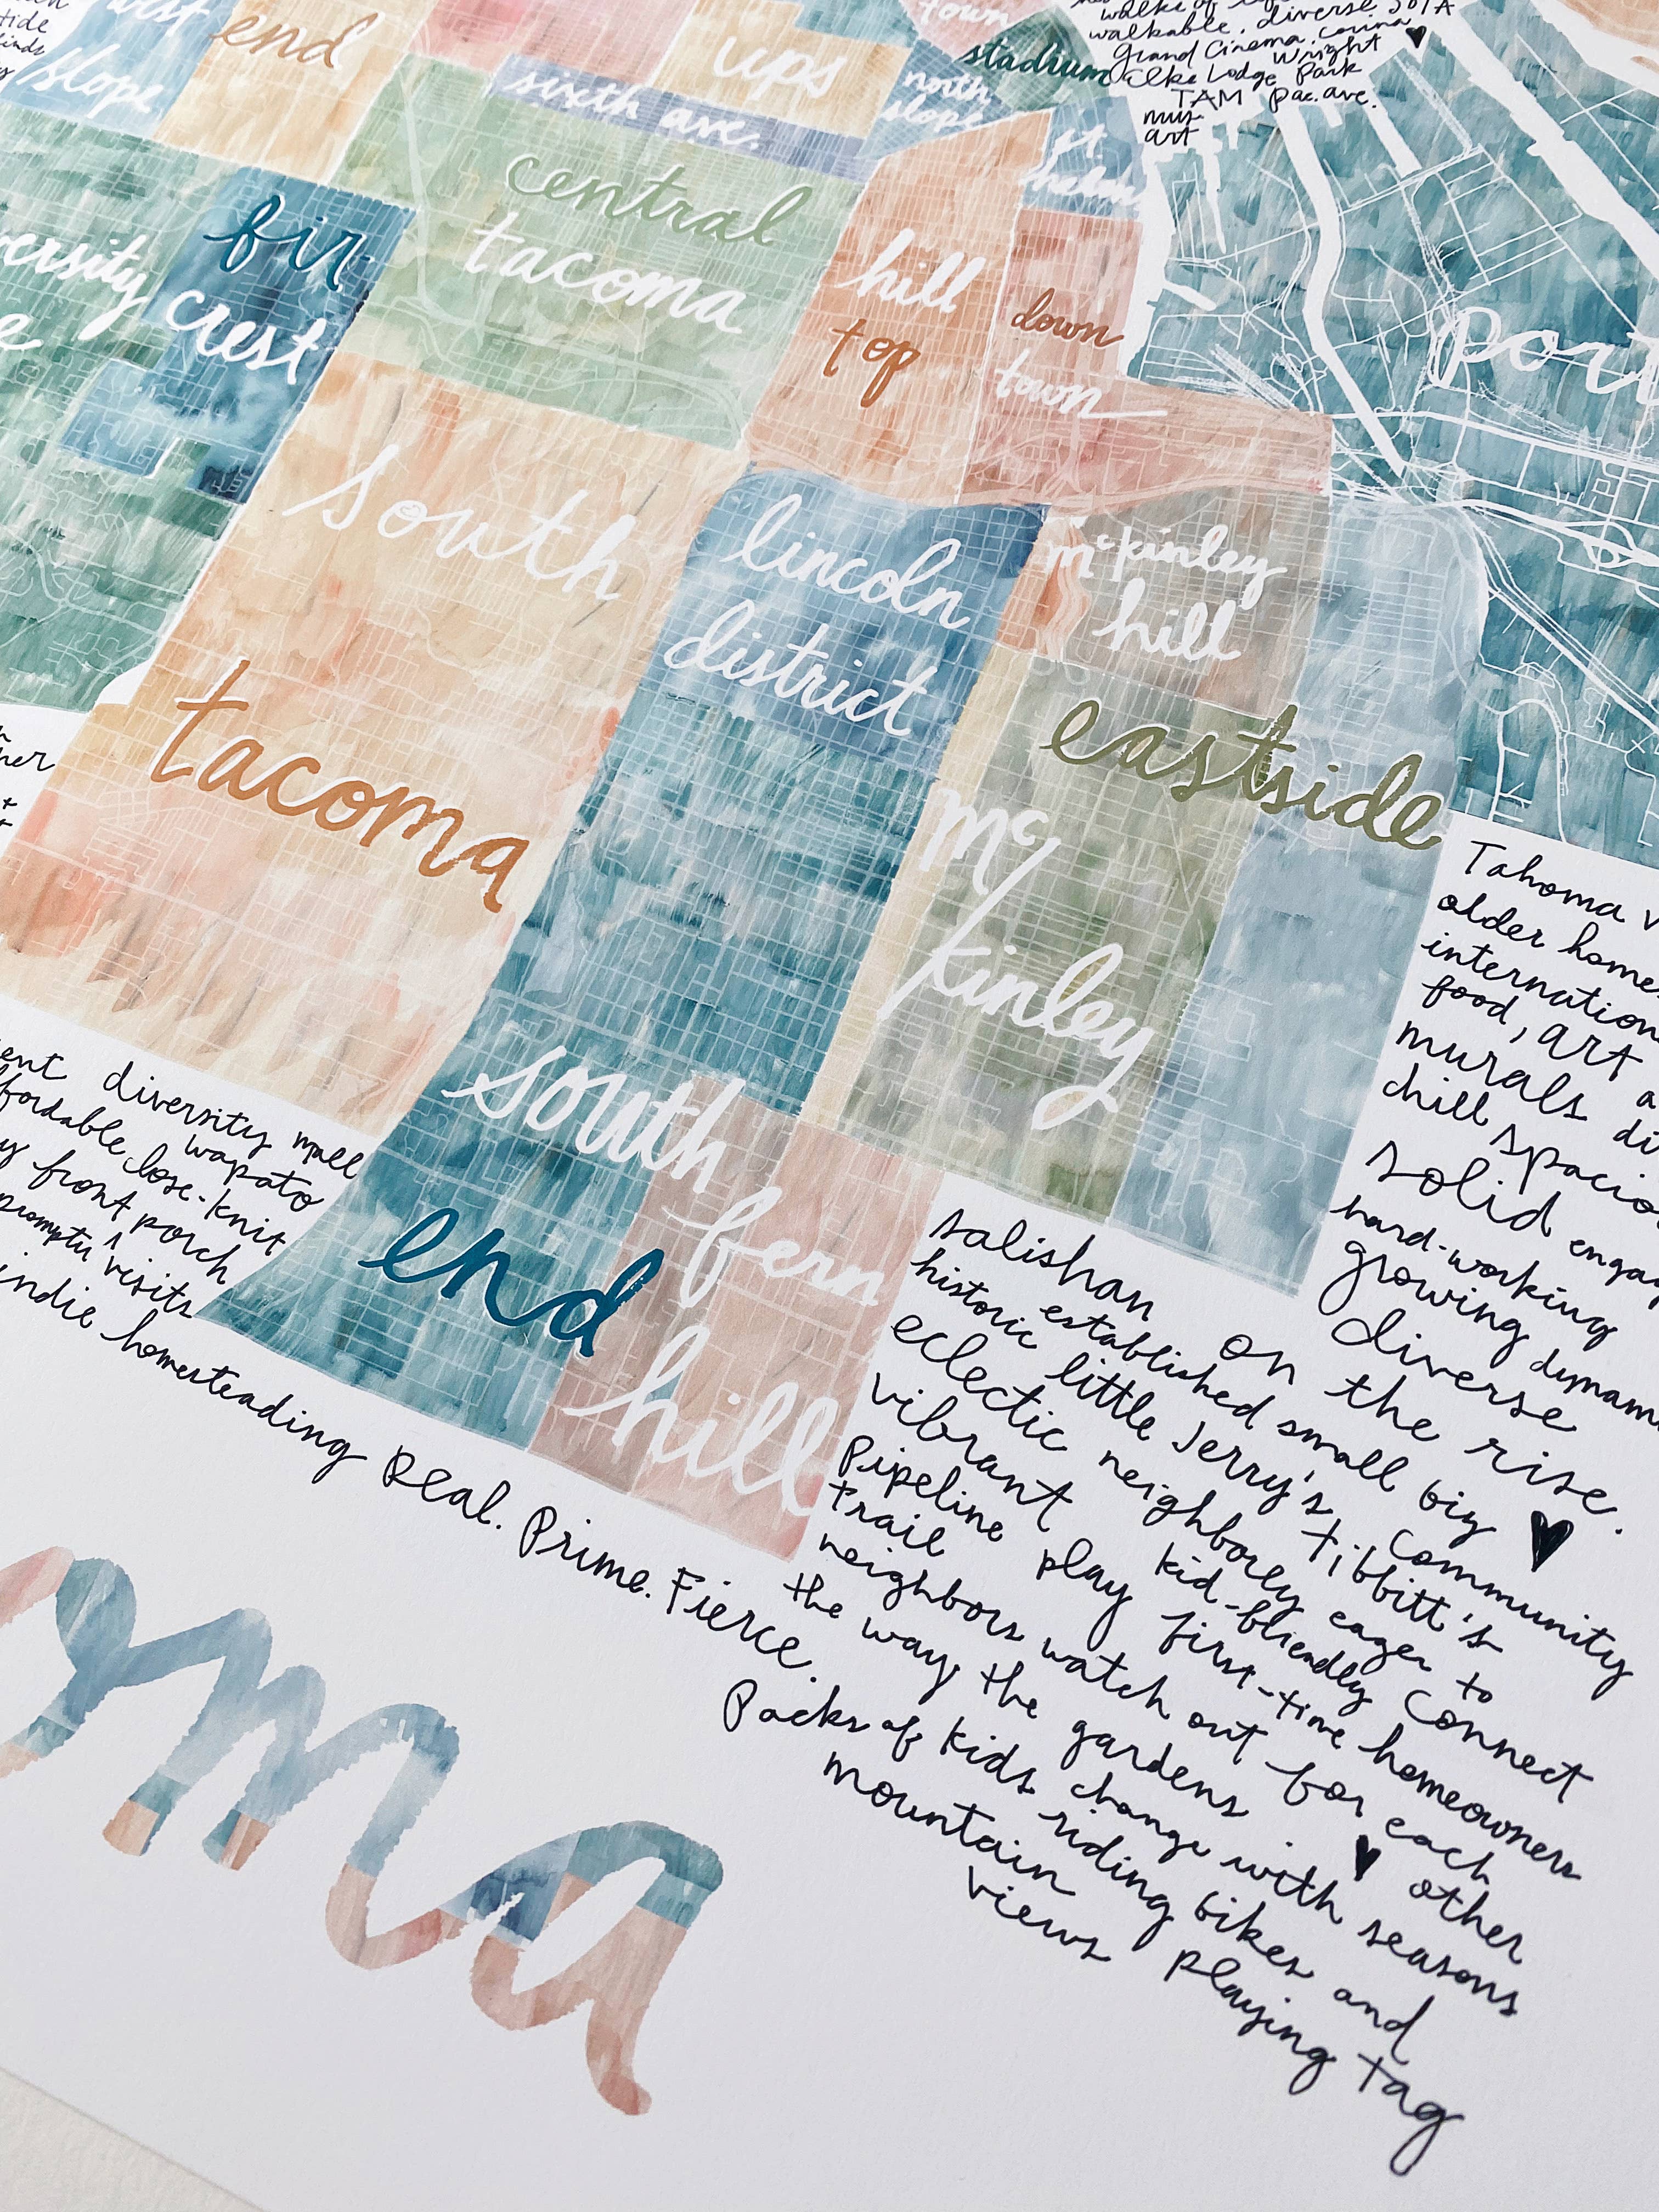 tide
west
slope
end
ups
town
sixth ave.
north
slope
stadium
walks of
walkable. diverse SOTA
Grand Cinema.
Wright
Elks Lodge Park
TAM pac. ave.
mus.
art
st.
central
tacoma
fir
crest
ersity
hill
top
down
town
port
south
tacoma
lincoln
district
mckinley
hill
eastside
mc
kinley
south
end
fern
hill
her
+
ent diversity mall
fordable wapato
close-knit
y front porch
promptu visits
indie homesteading Real. Prime. Fierce.
Tahoma
older home
internation
food, art a
murals di
chill spacio
solid engag
hard-working
growing dynam
diverse
salishan on the rise.
historic established small biz ♥
eclectic little Jerry's Community
vibrant neighborly Tibbitt's
Pipeline kid-friendly eager to
trail play first-time Connect
neighbors watch out homeowners
the way the gardens for each
other
Packs of kids change with seasons
mountain riding bikes and
views playing tag
oma